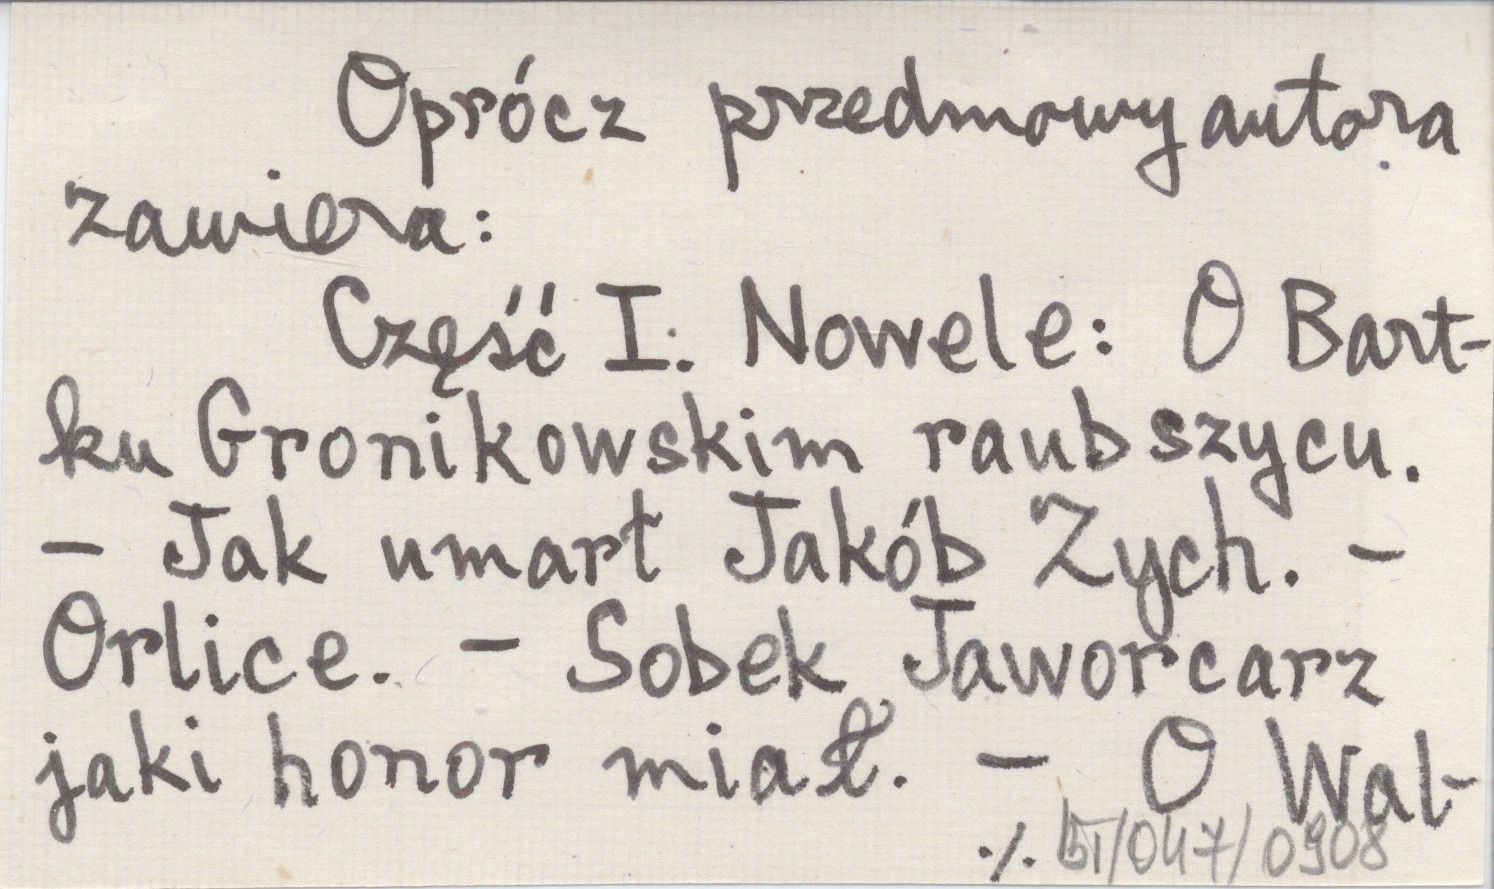 Oprócz przedmowy autora
zawiera:
Część I. Nowele: O Bart-
ku Gronikowskim raubszycu.
- Jak umarł Jakób Zych. -
Orlice. - Sobek Jaworcarz
jaki honor miał. - O Wal-
./. /047/0908